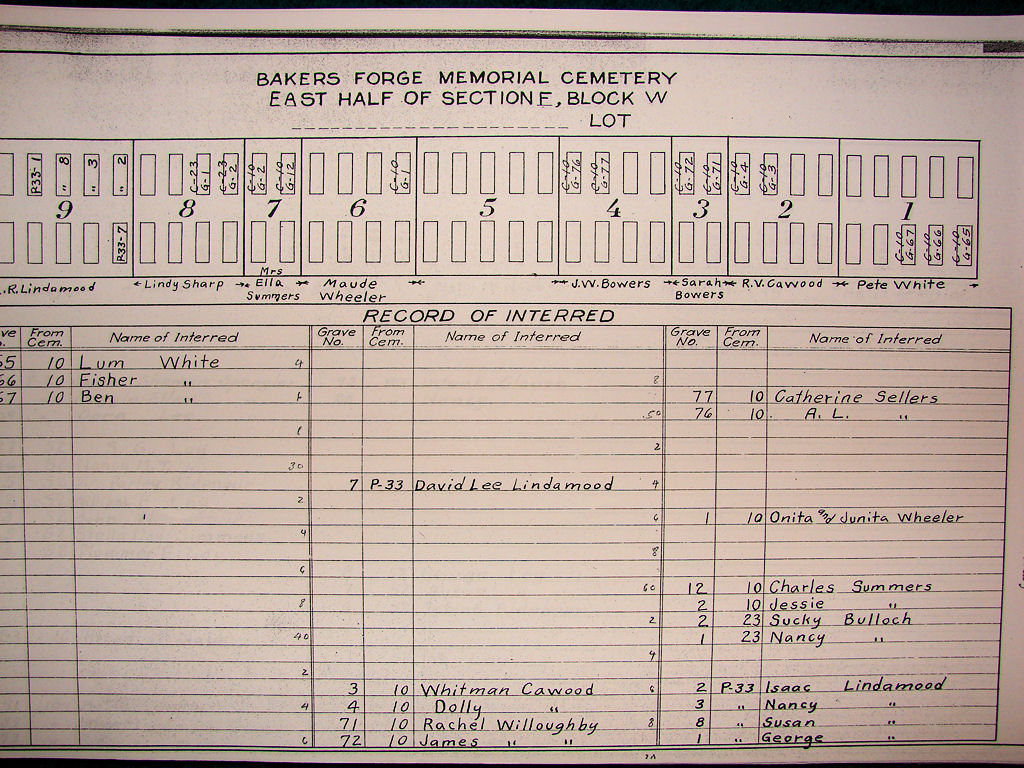 BAKERS FORGE MEMORIAL CEMETERY
EAST HALF OF SECTION E, BLOCK W
LOT
P33-1 " 8 " 3 " 2 C-23 G-1 C-23 G-2 C-10 G-2 C-10 G-12 C-10 G-1 C-10 G-76 C-10 G-77 C-10 G-72 C-10 G-71 C-10 G-4 C-10 G-3
9 8 7 6 5 4 3 2 1
P33-7 C-10 G-67 C-10 G-66 C-10 G-65
.R. Lindamood Lindy Sharp Mrs Ella Summers Maude Wheeler J.W. Bowers Sarah Bowers R.V. Cawood Pete White
RECORD OF INTERRED
From Cem. Name of Interred Grave No. From Cem. Name of Interred Grave No. From Cem. Name of Interred
55 10 Lum White 4
56 10 Fisher " 8
57 10 Ben " 77 10 Catherine Sellers
50 76 10 A. L. "
2
30
7 P-33 David Lee Lindamood 4
2
6 1 10 Onita and Junita Wheeler
4
8
6
60 12 10 Charles Summers
8 2 10 Jessie "
2 2 23 Sucky Bulloch
40 1 23 Nancy "
4
2
3 10 Whitman Cawood 6 2 P-33 Isaac Lindamood
4 4 10 Dolly " 3 " Nancy "
71 10 Rachel Willoughby 8 8 " Susan "
6 72 10 James " " 1 " George "